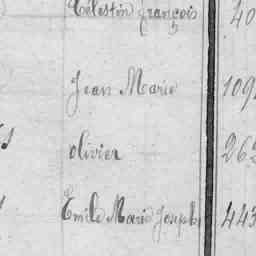 Célestin françois 40
Jean Marie 109
olivier 262
Emile Marie Joseph 443